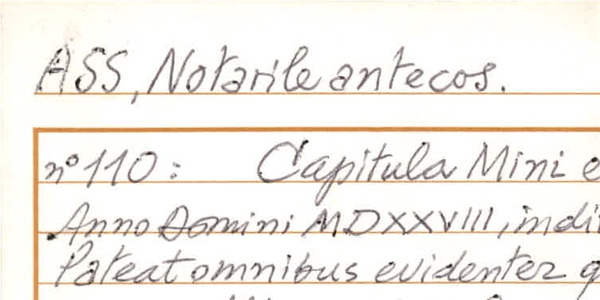 ASS, Notarile antecos.
n° 110: Capitula Mini e
Anno Domini MDXXVIII, indi
Pateat omnibus evidenter q